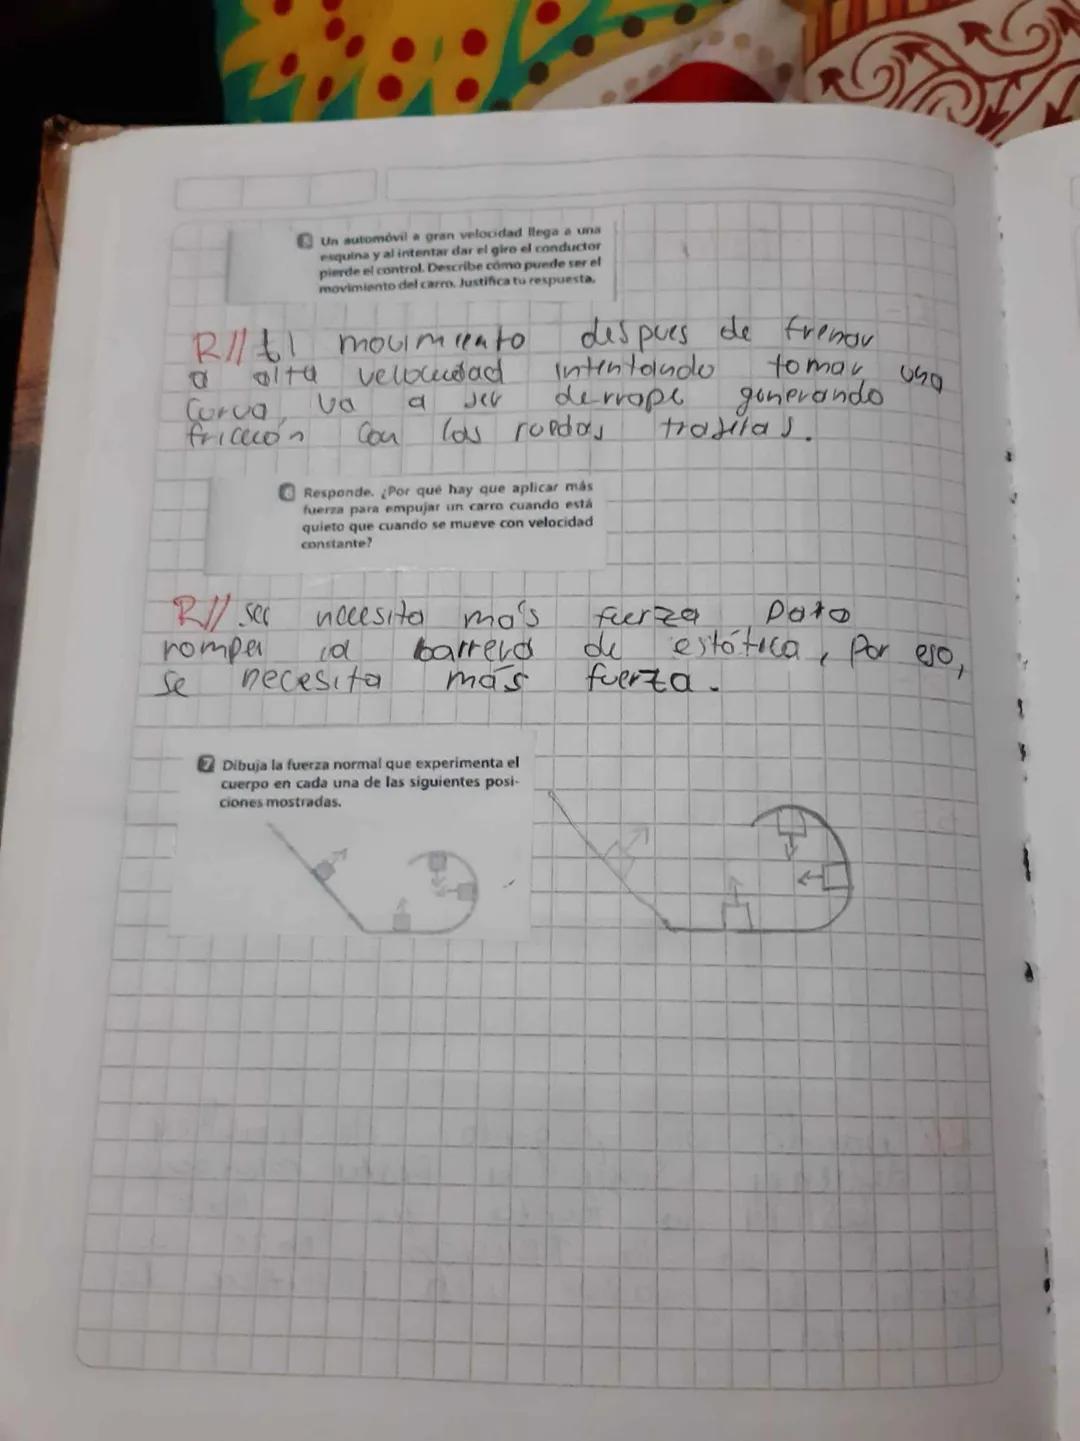 Un automóvil a gran velocidad llega a una
esquina y al intentar dar el giro el conductor
pierde el control. Describe cómo puede ser el
movimiento del carro. Justifica tu respuesta.
R// El movimiento despues de frenar
a alta velocidad intentando tomar una
curva, va a ser derrape generando
fricción con las ruedas traseras.
Responde. ¿Por qué hay que aplicar más
fuerza para empujar un carro cuando está
quieto que cuando se mueve con velocidad
constante?
R// se necesita más fuerza para
romper la barrera de estática, por eso,
se necesita más fuerza.
7 Dibuja la fuerza normal que experimenta el
cuerpo en cada una de las siguientes posi-
ciones mostradas.